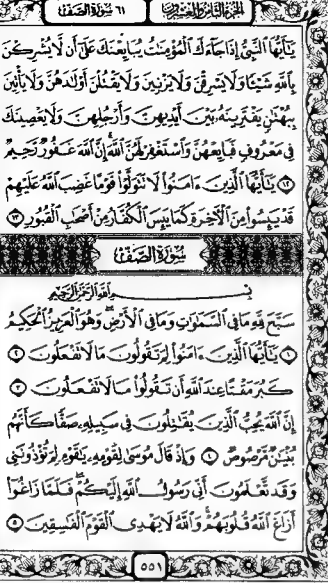 الجزء الثامن والعشرون ٦١ سورة الصف
يَـٰٓأَيُّهَا ٱلنَّبِىُّ إِذَا جَآءَكَ ٱلْمُؤْمِنَـٰتُ يُبَايِعْنَكَ عَلَىٰٓ أَن لَّا يُشْرِكْنَ
بِٱللَّهِ شَيْـًٔا وَلَا يَسْرِقْنَ وَلَا يَزْنِينَ وَلَا يَقْتُلْنَ أَوْلَـٰدَهُنَّ وَلَا يَأْتِينَ
بِبُهْتَـٰنٍ يَفْتَرِينَهُۥ بَيْنَ أَيْدِيهِنَّ وَأَرْجُلِهِنَّ وَلَا يَعْصِينَكَ
فِى مَعْرُوفٍ فَبَايِعْهُنَّ وَٱسْتَغْفِرْ لَهُنَّ ٱللَّهَ إِنَّ ٱللَّهَ غَفُورٌ رَّحِيمٌ
١٢ يَـٰٓأَيُّهَا ٱلَّذِينَ ءَامَنُوا۟ لَا تَتَوَلَّوْا۟ قَوْمًا غَضِبَ ٱللَّهُ عَلَيْهِمْ
قَدْ يَئِسُوا۟ مِنَ ٱلْـَٔاخِرَةِ كَمَا يَئِسَ ٱلْكُفَّارُ مِنْ أَصْحَـٰبِ ٱلْقُبُورِ ١٣
سُورَةُ الصَّفِّ
بِسْمِ ٱللَّهِ ٱلرَّحْمَـٰنِ ٱلرَّحِيمِ
سَبَّحَ لِلَّهِ مَا فِى ٱلسَّمَـٰوَٰتِ وَمَا فِى ٱلْأَرْضِ وَهُوَ ٱلْعَزِيزُ ٱلْحَكِيمُ
١ يَـٰٓأَيُّهَا ٱلَّذِينَ ءَامَنُوا۟ لِمَ تَقُولُونَ مَا لَا تَفْعَلُونَ ٢
كَبُرَ مَقْتًا عِندَ ٱللَّهِ أَن تَقُولُوا۟ مَا لَا تَفْعَلُونَ ٣
إِنَّ ٱللَّهَ يُحِبُّ ٱلَّذِينَ يُقَـٰتِلُونَ فِى سَبِيلِهِۦ صَفًّا كَأَنَّهُم
بُنْيَـٰنٌ مَّرْصُوصٌ ٤ وَإِذْ قَالَ مُوسَىٰ لِقَوْمِهِۦ يَـٰقَوْمِ لِمَ تُؤْذُونَنِى
وَقَد تَّعْلَمُونَ أَنِّى رَسُولُ ٱللَّهِ إِلَيْكُمْ فَلَمَّا زَاغُوٓا۟
أَزَاغَ ٱللَّهُ قُلُوبَهُمْ وَٱللَّهُ لَا يَهْدِى ٱلْقَوْمَ ٱلْفَـٰسِقِينَ ٥
٥٥١